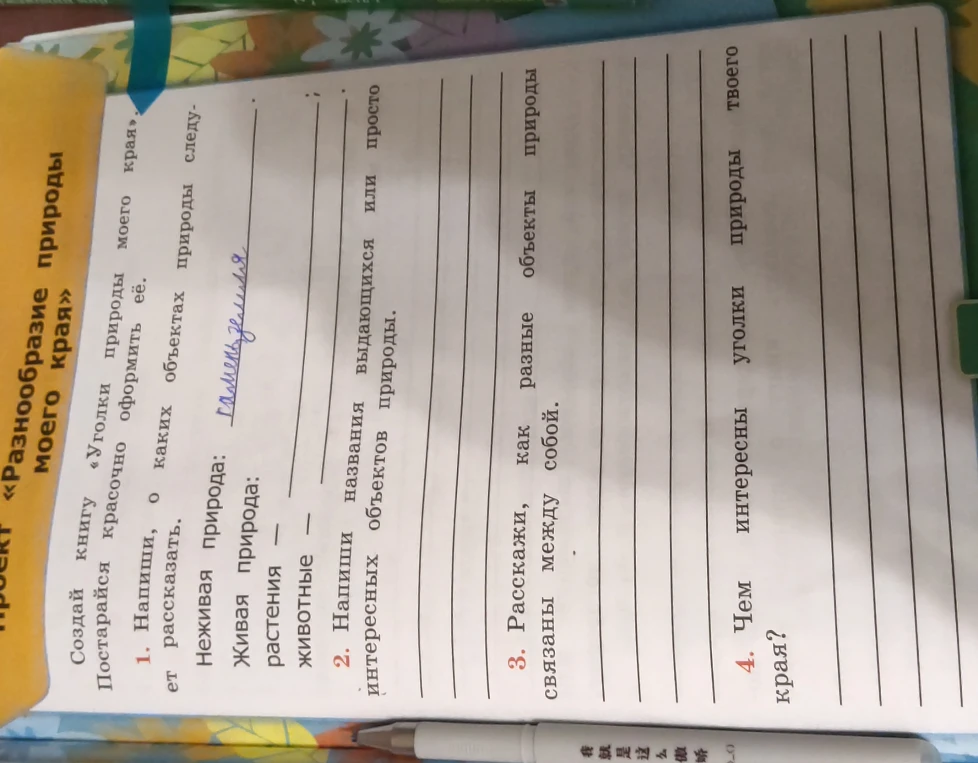 «Разнообразие природы
моего края»
Создай книгу «Уголки природы моего края».
Постарайся красочно оформить её.
1. Напиши, о каких объектах природы следу-
ет рассказать.
Неживая природа:
Живая природа:
растения — ;
животные — .
2. Напиши названия выдающихся или просто
интересных объектов природы.
3. Расскажи, как разные объекты природы
связаны между собой.
4. Чем интересны уголки природы твоего
края?
我
就
是
这
么
傲
娇